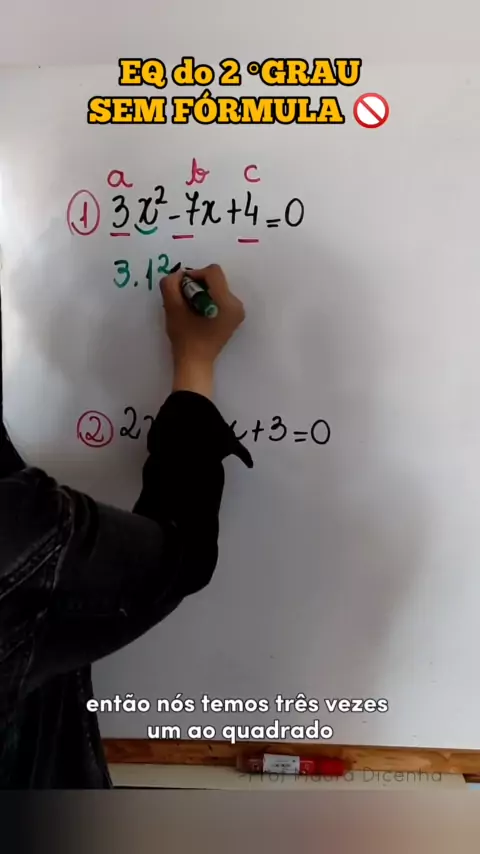 EQ do 2 °GRAU
SEM FÓRMULA
a b c
1 3x² - 7x + 4 = 0
3.1²
2 2 x + 3 = 0
então nós temos três vezes
um ao quadrado